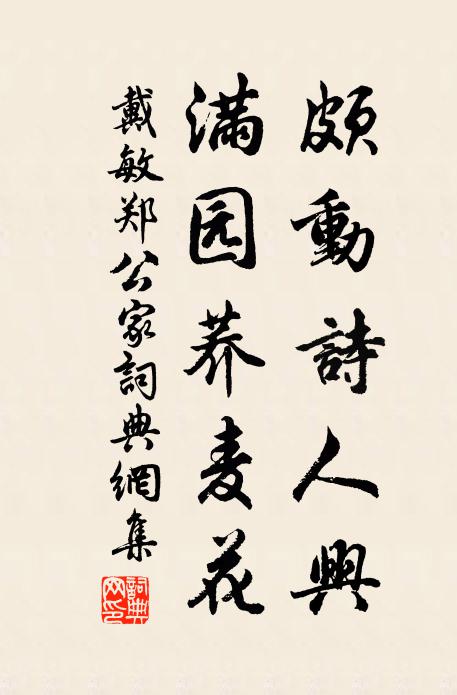 頗動詩人興
滿园荞麦花
戴敏郑公家詞典網集
詞典网印